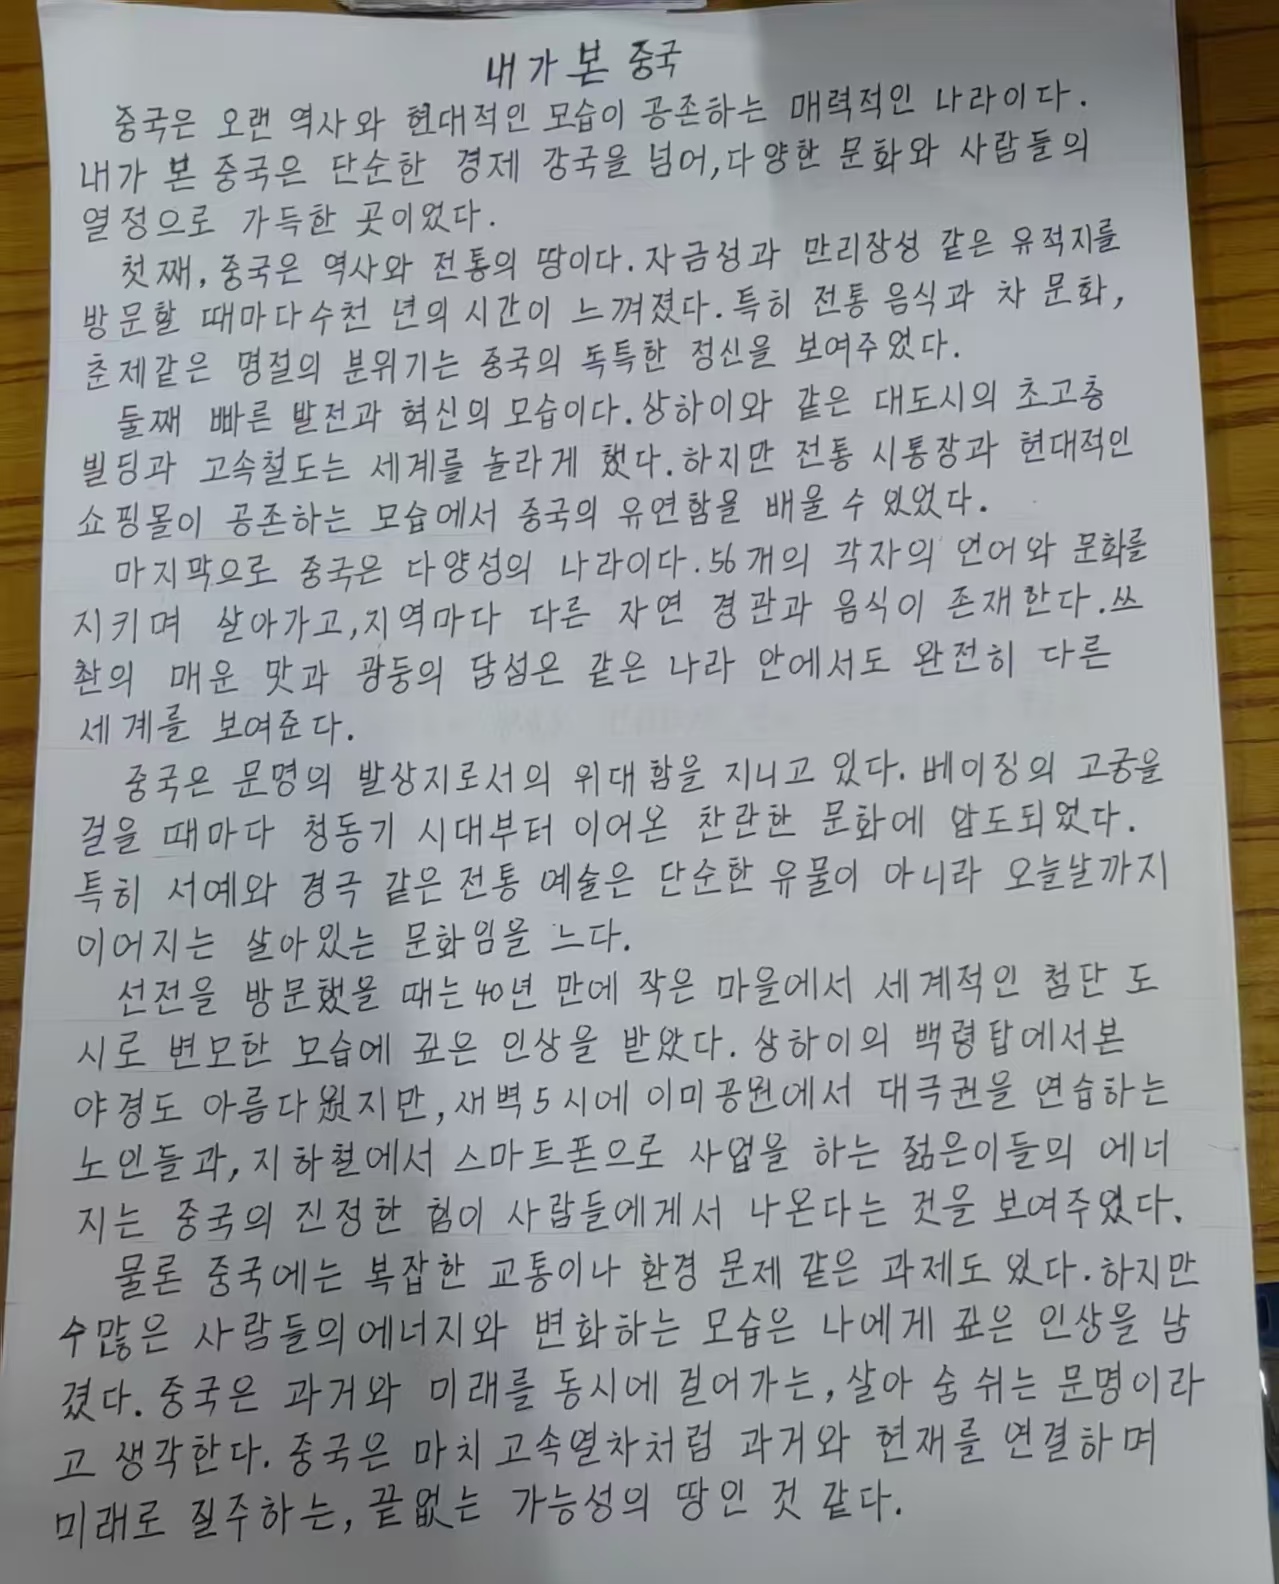 내가 본 중국
중국은 오랜 역사와 현대적인 모습이 공존하는 매력적인 나라이다.
내가 본 중국은 단순한 경제 강국을 넘어, 다양한 문화와 사람들의
열정으로 가득한 곳이었다.
첫째, 중국은 역사와 전통의 땅이다. 자금성과 만리장성 같은 유적지를
방문할 때마다 수천 년의 시간이 느껴졌다. 특히 전통 음식과 차 문화,
춘제같은 명절의 분위기는 중국의 독특한 정신을 보여주었다.
둘째 빠른 발전과 혁신의 모습이다. 상하이와 같은 대도시의 초고층
빌딩과 고속철도는 세계를 놀라게 했다. 하지만 전통 시통장과 현대적인
쇼핑몰이 공존하는 모습에서 중국의 유연함을 배울 수 있었다.
마지막으로 중국은 다양성의 나라이다. 56개의 각자의 언어와 문화를
지키며 살아가고, 지역마다 다른 자연 경관과 음식이 존재한다. 쓰
촨의 매운 맛과 광둥의 담섬은 같은 나라 안에서도 완전히 다른
세계를 보여준다.
중국은 문명의 발상지로서의 위대함을 지니고 있다. 베이징의 고궁을
걸을 때마다 청동기 시대부터 이어온 찬란한 문화에 압도되었다.
특히 서예와 경극 같은 전통 예술은 단순한 유물이 아니라 오늘날까지
이어지는 살아있는 문화임을 느다.
선전을 방문했을 때는 40년 만에 작은 마을에서 세계적인 첨단 도
시로 변모한 모습에 깊은 인상을 받았다. 상하이의 백령탑에서본
야경도 아름다웠지만, 새벽 5시에 이미공원에서 대극권을 연습하는
노인들과, 지하철에서 스마트폰으로 사업을 하는 젊은이들의 에너
지는 중국의 진정한 힘이 사람들에게서 나온다는 것을 보여주었다.
물론 중국에는 복잡한 교통이나 환경 문제 같은 과제도 있다. 하지만
수많은 사람들의 에너지와 변화하는 모습은 나에게 깊은 인상을 남
겼다. 중국은 과거와 미래를 동시에 걸어가는, 살아 숨 쉬는 문명이라
고 생각한다. 중국은 마치 고속열차처럼 과거와 현재를 연결하며
미래로 질주하는, 끝없는 가능성의 땅인 것 같다.